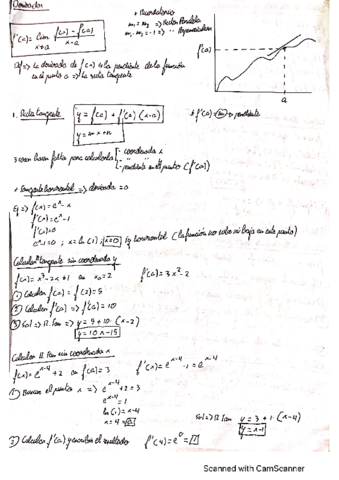 Derivadas
* Recordatorio
m₁ = m₂ => Rectas Paralelas
m₁ · m₂ = -1 => " Perpendiculares
f'(a) = lim x→a f(x) - f(a) / x - a
f(a)
a
=> La derivada de f(x) es la pendiente de la función
en el punto a => la recta tangente
1. Recta tangente y = f(a) + f'(a) (x-a)
* f'(a) = m => pendiente
y = mx + n
3 cosas hacen falta para calcularla
- coordenada x
- " y
- pendiente en el punto (f'(a))
* Tangente horizontal => derivada = 0
Ej => f(x) = eˣ - x
f'(x) = eˣ - 1
f'(x) = 0
eˣ - 1 = 0 ; x = ln(1) ; x=0 tg horizontal (la función no sube ni baja en este punto)
Calcular tangente sin coordenada y
f(x) = x³ - 2x + 1 en x₀ = 2 f'(x) = 3x² - 2
① Calcular f(a) = f(2) = 5
② Calcular f'(a) => f'(a) = 10
③ Sol => R. Tan => y = 5 + 10 · (x-2)
y = 10x - 15
Calcular R. Tan sin coordenada x
f(x) = eˣ⁻⁴ + 2 en f(a) = 3 f'(x) = eˣ⁻⁴ · 1 = eˣ⁻⁴
① Buscar el punto x => eˣ⁻⁴ + 2 = 3
eˣ⁻⁴ = 1
ln(1) = x-4
x = 4
Sol => R. Tan y = 3 + 1 · (x-4)
y = x - 1
② Calcular f'(a) y el resultado f'(4) = e⁰ = 1
Scanned with CamScanner